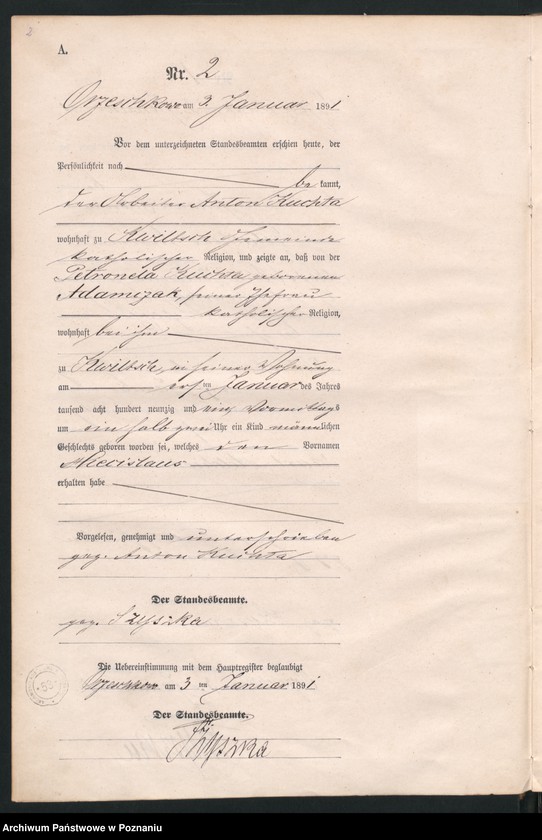 2
A.
Nr. 2
Orzeschkowo am 3. Januar 1891
Vor dem unterzeichneten Standesbeamten erschien heute, der
Persönlichkeit nach
be kannt,
der Arbeiter Anton Kuchta
wohnhaft zu Kwiltsch Gemeinde
katholischer Religion, und zeigte an, daß von der
Petronela Kuchta geborenen
Adamczak, seiner Ehefrau
katholischer Religion,
wohnhaft bei ihm
zu Kwiltsch, in seiner Wohnung
am ersten Januar des Jahres
tausend acht hundert neunzig und ein, Vormittags
um ein halb zwei Uhr ein Kind männlichen
Geschlechts geboren worden sei, welches den Vornamen
Miecislaus
erhalten habe
Vorgelesen, genehmigt und unterschrieben
gez. Anton Kuchta
Der Standesbeamte.
gez. Szyszka
Die Uebereinstimmung mit dem Hauptregister beglaubigt
Orzeschkowo am 3 ten Januar 1891
Der Standesbeamte.
Szyszka
Archiwum Państwowe w Poznaniu